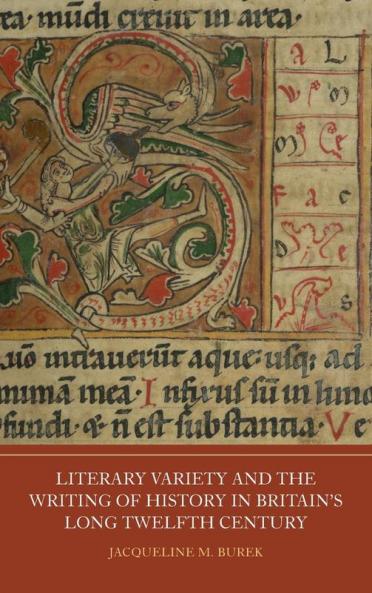 ea mūdi creuit in area·
A L
V M
M E
F A C
D E
V S
uō intrauerūt aque usq; ad
nimā meā· Infixus sū in limo
fundi· & n̄ est substantia· Ve
LITERARY VARIETY AND THE
WRITING OF HISTORY IN BRITAIN'S
LONG TWELFTH CENTURY
JACQUELINE M. BUREK